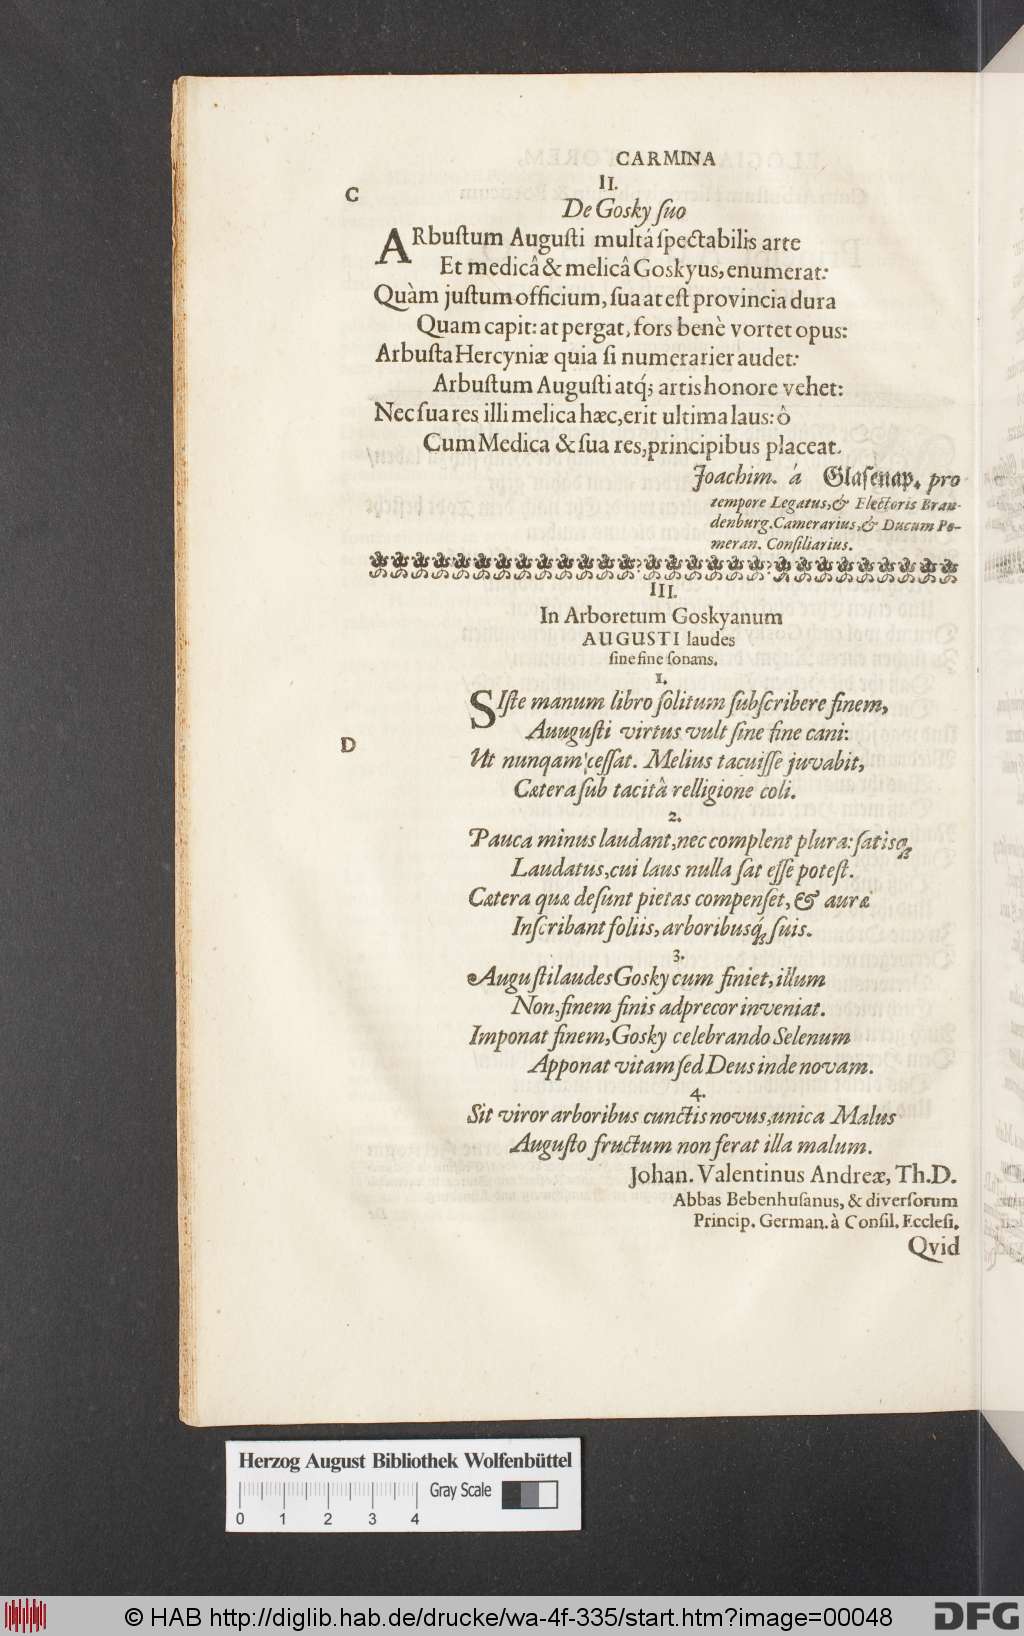 CARMINA
II.
C
De Gosky ſuo
ARbuſtum Auguſti multá ſpectabilis arte
Et medicâ & melicâ Goskyus, enumerat:
Quàm juſtum officium, ſua at eſt provincia dura
Quam capit: at pergat, fors benè vortet opus:
Arbuſta Hercyniæ quia ſi numerarier audet:
Arbuſtum Auguſti atq́; artis honore vehet:
Nec ſua res illi melica hæc, erit ultima laus: ô
Cum Medica & ſua res, principibus placeat.
Joachim. á Glaſenap. pro
tempore Legatus, & Electoris Bran-
denburg. Camerarius, & Ducum Po-
meran. Conſiliarius.
III.
In Arboretum Goskyanum
AUGUSTI laudes
ſine fine ſonans.
1.
SIſte manum libro ſolitum ſubſcribere finem,
Auuguſti virtus vult ſine fine cani:
D
Ut nunqam ceſſat. Melius tacuiſſe juvabit,
Cætera ſub tacitâ relligione coli.
2.
Pauca minus laudant, nec complent plura: ſatisq;
Laudatus, cui laus nulla ſat eſſe poteſt.
Cætera quæ deſunt pietas compenſet, & auræ
Inſcribant foliis, arboribusq́; ſuis.
3.
Auguſti laudes Gosky cum finiet, illum
Non, finem finis adprecor inveniat.
Imponat finem, Gosky celebrando Selenum
Apponat vitam ſed Deus inde novam.
4.
Sit viror arboribus cunctis novus, unica Malus
Auguſto fructum non ferat illa malum.
Johan. Valentinus Andreæ, Th. D.
Abbas Bebenhuſanus, & diverſorum
Princip. German. à Conſil. Eccleſi.
Qvid
Herzog August Bibliothek Wolfenbüttel
Gray Scale
0 1 2 3 4
© HAB http://diglib.hab.de/drucke/wa-4f-335/start.htm?image=00048
DFG